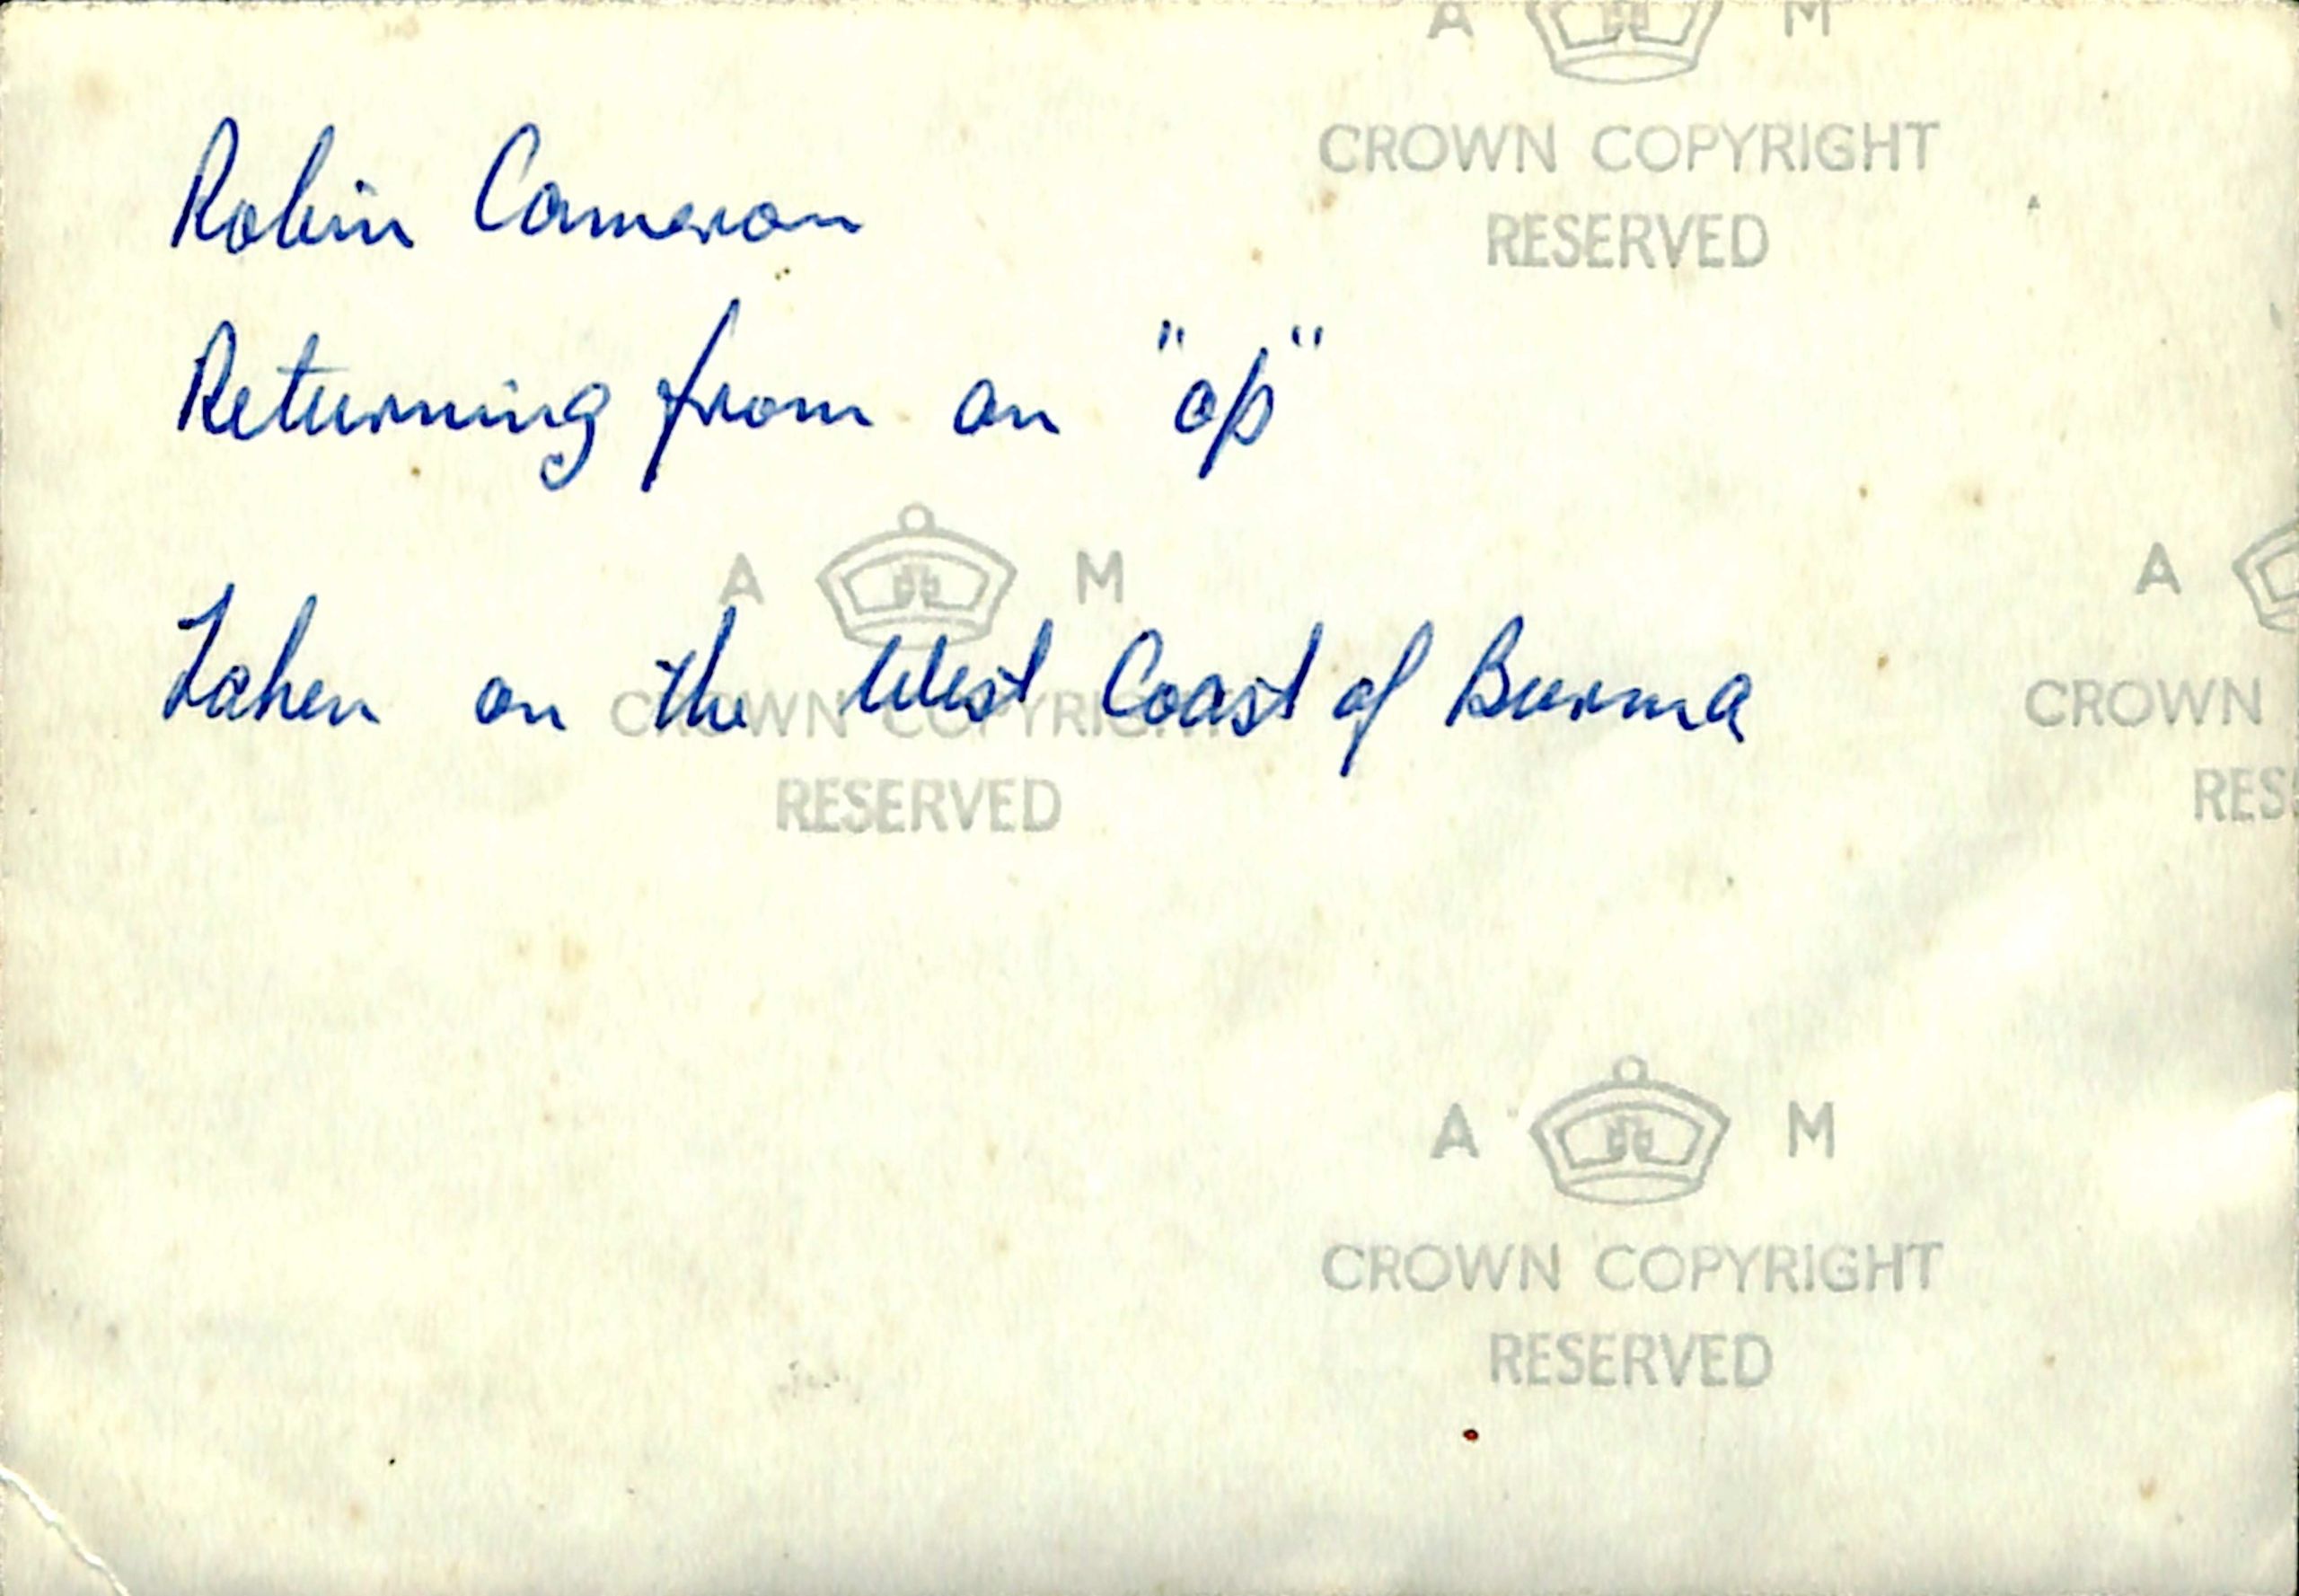 A M
CROWN COPYRIGHT
RESERVED
Robin Cameron
Returning from an "op"
A M
Taken on the West Coast of Burma
CROWN COPYRIGHT
RESERVED
A
CROWN
RES
A M
CROWN COPYRIGHT
RESERVED